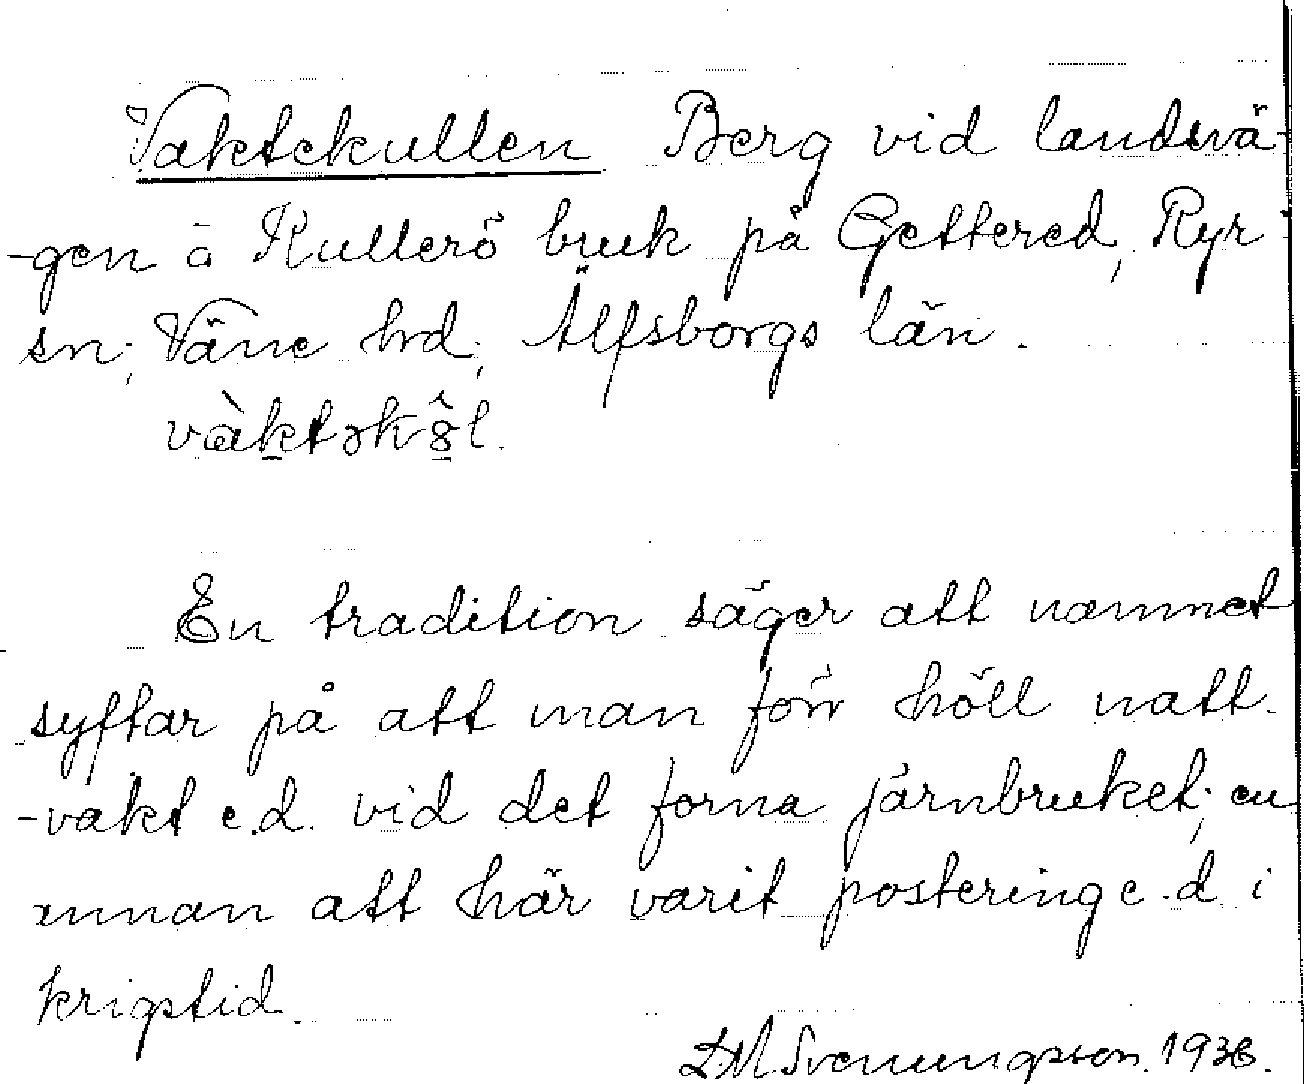 Vaktekullen Berg vid landsvä-
-gen å Kullerö bruk på Gettered, Ryr
sn; Väne hrd; Älfsborgs län.
vàktəkôl.
En tradition säger att namnet
syftar på att man förr höll natt-
-vakt e.d. vid det forna järnbruket; en
annan att här varit postering e.d i
krigstid.
D.M. Svenungsson. 1936.